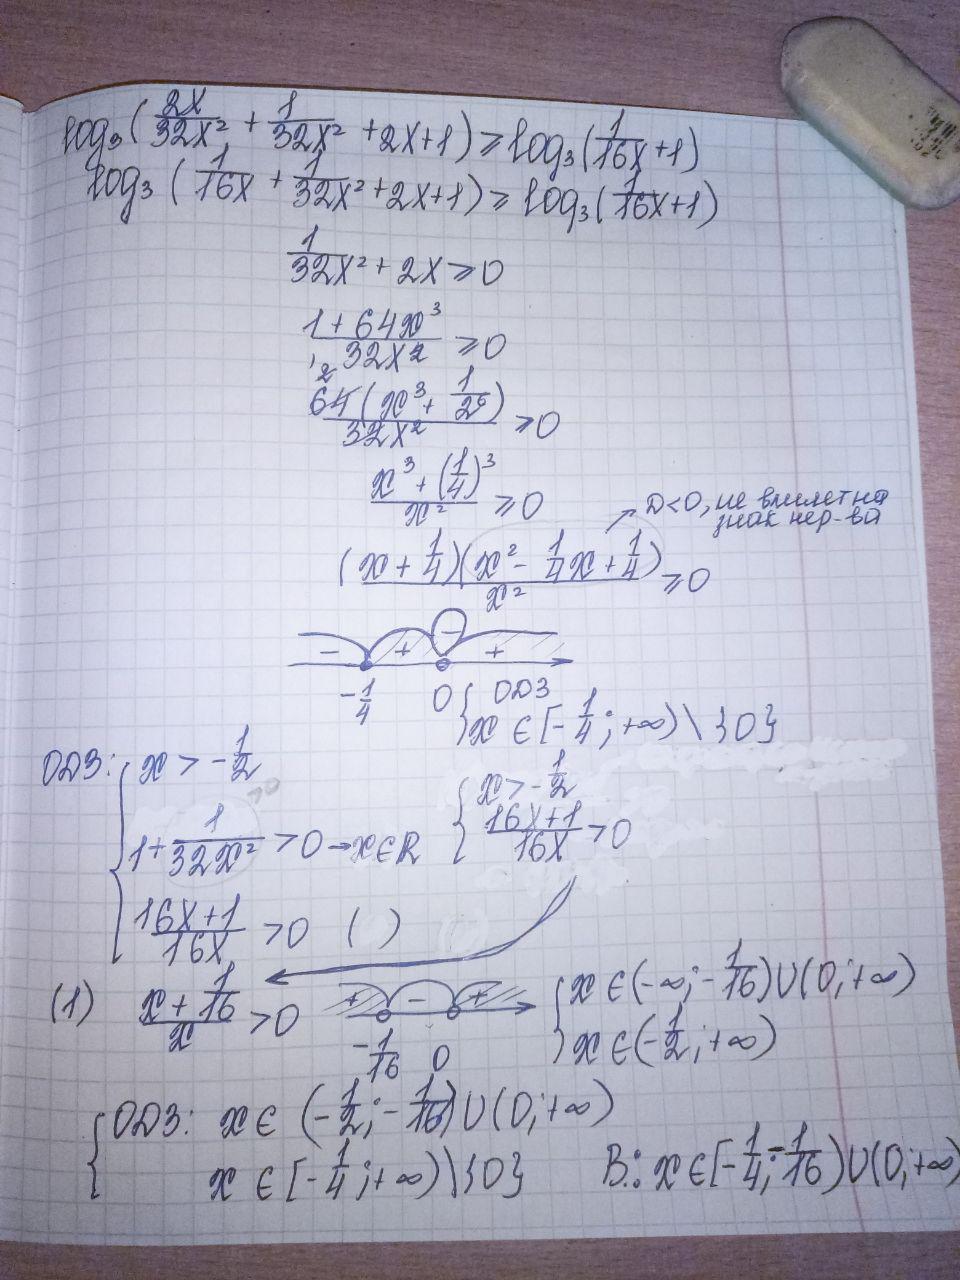 log₃(2x/32x² + 1/32x² + 2x+1) ⩾ log₃(1/16x + 1)
log₃(1/16x + 1/32x² + 2x+1) ⩾ log₃(1/16x + 1)
1/32x² + 2x ⩾ 0
1 + 64x³/32x² ⩾ 0
64(x³ + 1/2⁶)/32x² ⩾ 0
x³ + (1/4)³/x² ⩾ 0
D<0, не влияет на
знак нер-ва
(x + 1/4)(x² - 1/4x + 1/4)/x² ⩾ 0
- + - +
-1/4 0 { ОДЗ
x ∈ [-1/4; +∞) \ {0}
ОДЗ: { x > -1/2 { x > -1/2
1 + 1/32x² > 0 → x ∈ R 16x+1/16x > 0
>0
16x+1/16x > 0 ( )
(1) x + 1/16/x > 0 + - + { x ∈ (-∞; -1/16) ∪ (0; +∞)
-1/16 0 x ∈ (-1/2; +∞)
{ ОДЗ: x ∈ (-1/2; -1/16) ∪ (0; +∞)
x ∈ [-1/4; +∞) \ {0} В.: x ∈ [-1/4; -1/16) ∪ (0; +∞)